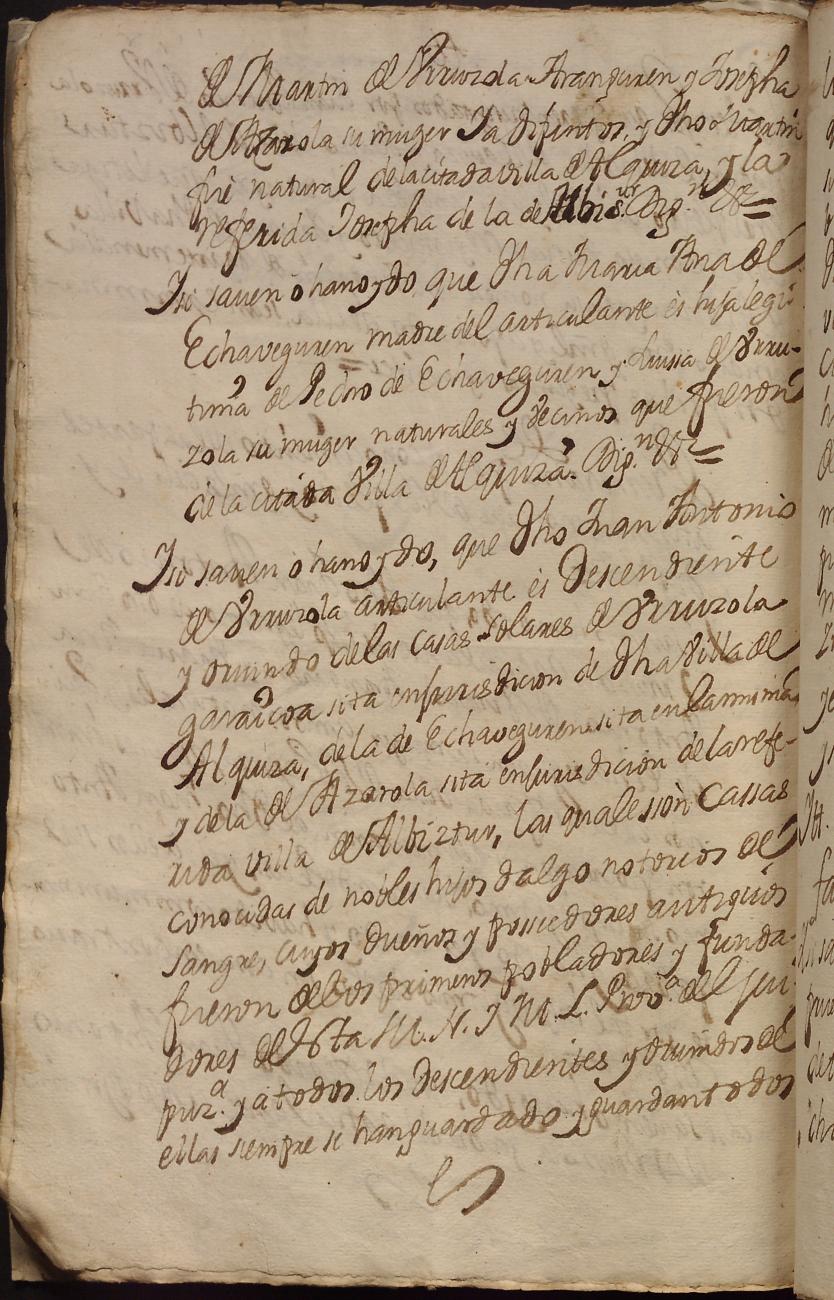 de Martin de Vrruzola Aranguren y Josepha
de Azarola su muger Ya difuntos, y dho Martin
fue natural delacitadavilla de Alquiza, y la
referida Josepha de la de Albis.ur Dig.n &=
Isi saven ohanoydo que dha Maria Ana de
Echaveguren madre del articulante es hija legi
tima de Pedro de Echaveguren y Luissa de Vrru-
zola su muger naturales y vecinos que fueron
de la citada Villa de Alquiza. Dig.n &=
Isi saven ohanoydo, que dho Juan Antonio
de Vrruzola articulante es Descendiente
y oriundo delas casas solares de Vrruzola
garaicoa sita ensurisdicion de dha Villa de
Alquiza, dela de Echaveguren sita en la misma
y dela de Azarola sita ensurisdicion dela refe-
rida villa de Albiztur, las quales son Cassas
conocidas de nobles hijos dalgo notorios de
sangre, cuyos dueños y posseedores antiguos
fueron delos primeros pobladores y funda-
dores de esta M. N. y M. L. Prov.a de Gui
puz.a y atodos los Descendientes y oriundos de
ellas siempre se hanguardado y guardan todos